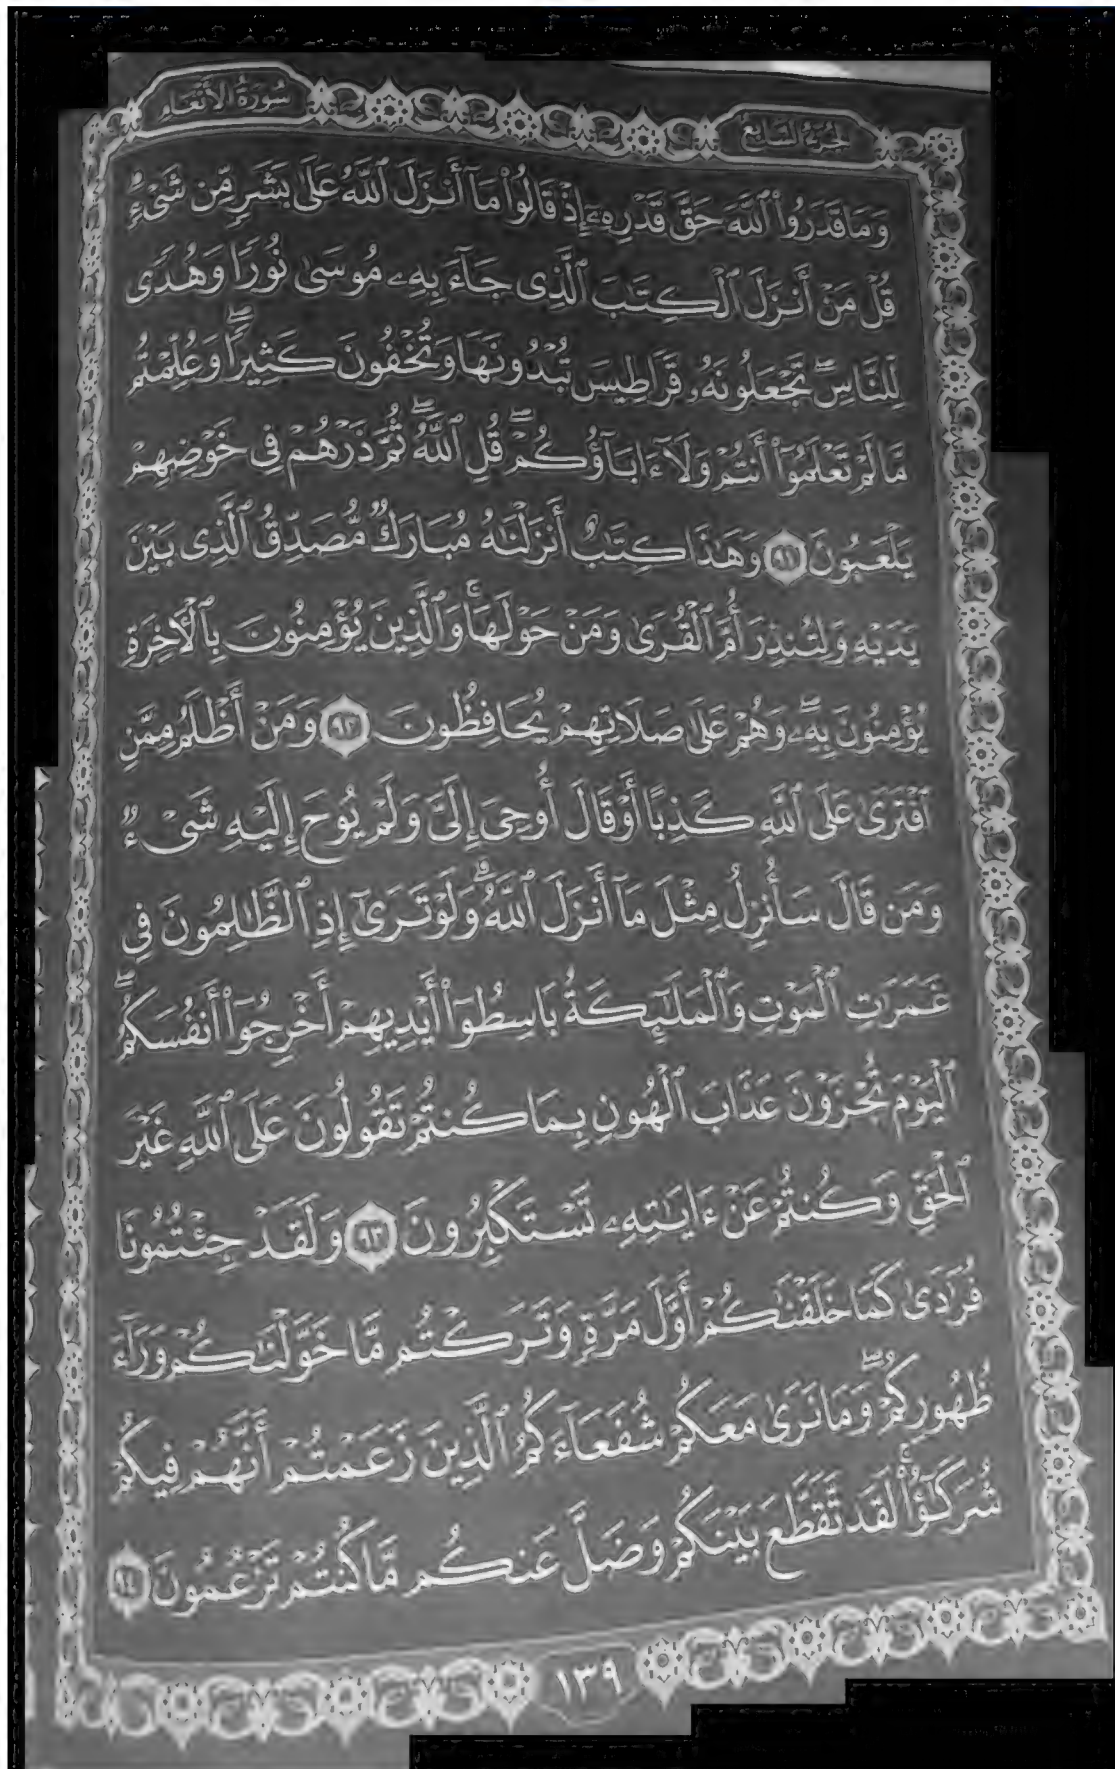 الجزء السابع
سورة الأنعام
وَمَا قَدَرُوا۟ ٱللَّهَ حَقَّ قَدْرِهِۦٓ إِذْ قَالُوا۟ مَآ أَنزَلَ ٱللَّهُ عَلَىٰ بَشَرٍ مِّن شَىْءٍ
قُلْ مَنْ أَنزَلَ ٱلْكِتَٰبَ ٱلَّذِى جَآءَ بِهِۦ مُوسَىٰ نُورًا وَهُدًى
لِّلنَّاسِ تَجْعَلُونَهُۥ قَرَاطِيسَ تُبْدُونَهَا وَتُخْفُونَ كَثِيرًا وَعُلِّمْتُم
مَّا لَمْ تَعْلَمُوٓا۟ أَنتُمْ وَلَآ ءَابَآؤُكُمْ ۖ قُلِ ٱللَّهُ ۖ ثُمَّ ذَرْهُمْ فِى خَوْضِهِمْ
يَلْعَبُونَ ٩١ وَهَٰذَا كِتَٰبٌ أَنزَلْنَٰهُ مُبَارَكٌ مُّصَدِّقُ ٱلَّذِى بَيْنَ
يَدَيْهِ وَلِتُنذِرَ أُمَّ ٱلْقُرَىٰ وَمَنْ حَوْلَهَا ۚ وَٱلَّذِينَ يُؤْمِنُونَ بِٱلْءَاخِرَةِ
يُؤْمِنُونَ بِهِۦ ۖ وَهُمْ عَلَىٰ صَلَاتِهِمْ يُحَافِظُونَ ٩٢ وَمَنْ أَظْلَمُ مِمَّنِ
ٱفْتَرَىٰ عَلَى ٱللَّهِ كَذِبًا أَوْ قَالَ أُوحِىَ إِلَىَّ وَلَمْ يُوحَ إِلَيْهِ شَىْءٌ
وَمَن قَالَ سَأُنزِلُ مِثْلَ مَآ أَنزَلَ ٱللَّهُ ۗ وَلَوْ تَرَىٰٓ إِذِ ٱلظَّٰلِمُونَ فِى
غَمَرَٰتِ ٱلْمَوْتِ وَٱلْمَلَٰٓئِكَةُ بَاسِطُوٓا۟ أَيْدِيهِمْ أَخْرِجُوٓا۟ أَنفُسَكُمُ ۖ
ٱلْيَوْمَ تُجْزَوْنَ عَذَابَ ٱلْهُونِ بِمَا كُنتُمْ تَقُولُونَ عَلَى ٱللَّهِ غَيْرَ
ٱلْحَقِّ وَكُنتُمْ عَنْ ءَايَٰتِهِۦ تَسْتَكْبِرُونَ ٩٣ وَلَقَدْ جِئْتُمُونَا
فُرَٰدَىٰ كَمَا خَلَقْنَٰكُمْ أَوَّلَ مَرَّةٍ وَتَرَكْتُم مَّا خَوَّلْنَٰكُمْ وَرَآءَ
ظُهُورِكُمْ ۖ وَمَا نَرَىٰ مَعَكُمْ شُفَعَآءَكُمُ ٱلَّذِينَ زَعَمْتُمْ أَنَّهُمْ فِيكُمْ
شُرَكَٰٓؤُا۟ ۚ لَقَد تَّقَطَّعَ بَيْنَكُمْ وَضَلَّ عَنكُم مَّا كُنتُمْ تَزْعُمُونَ ٩٤
١٣٩